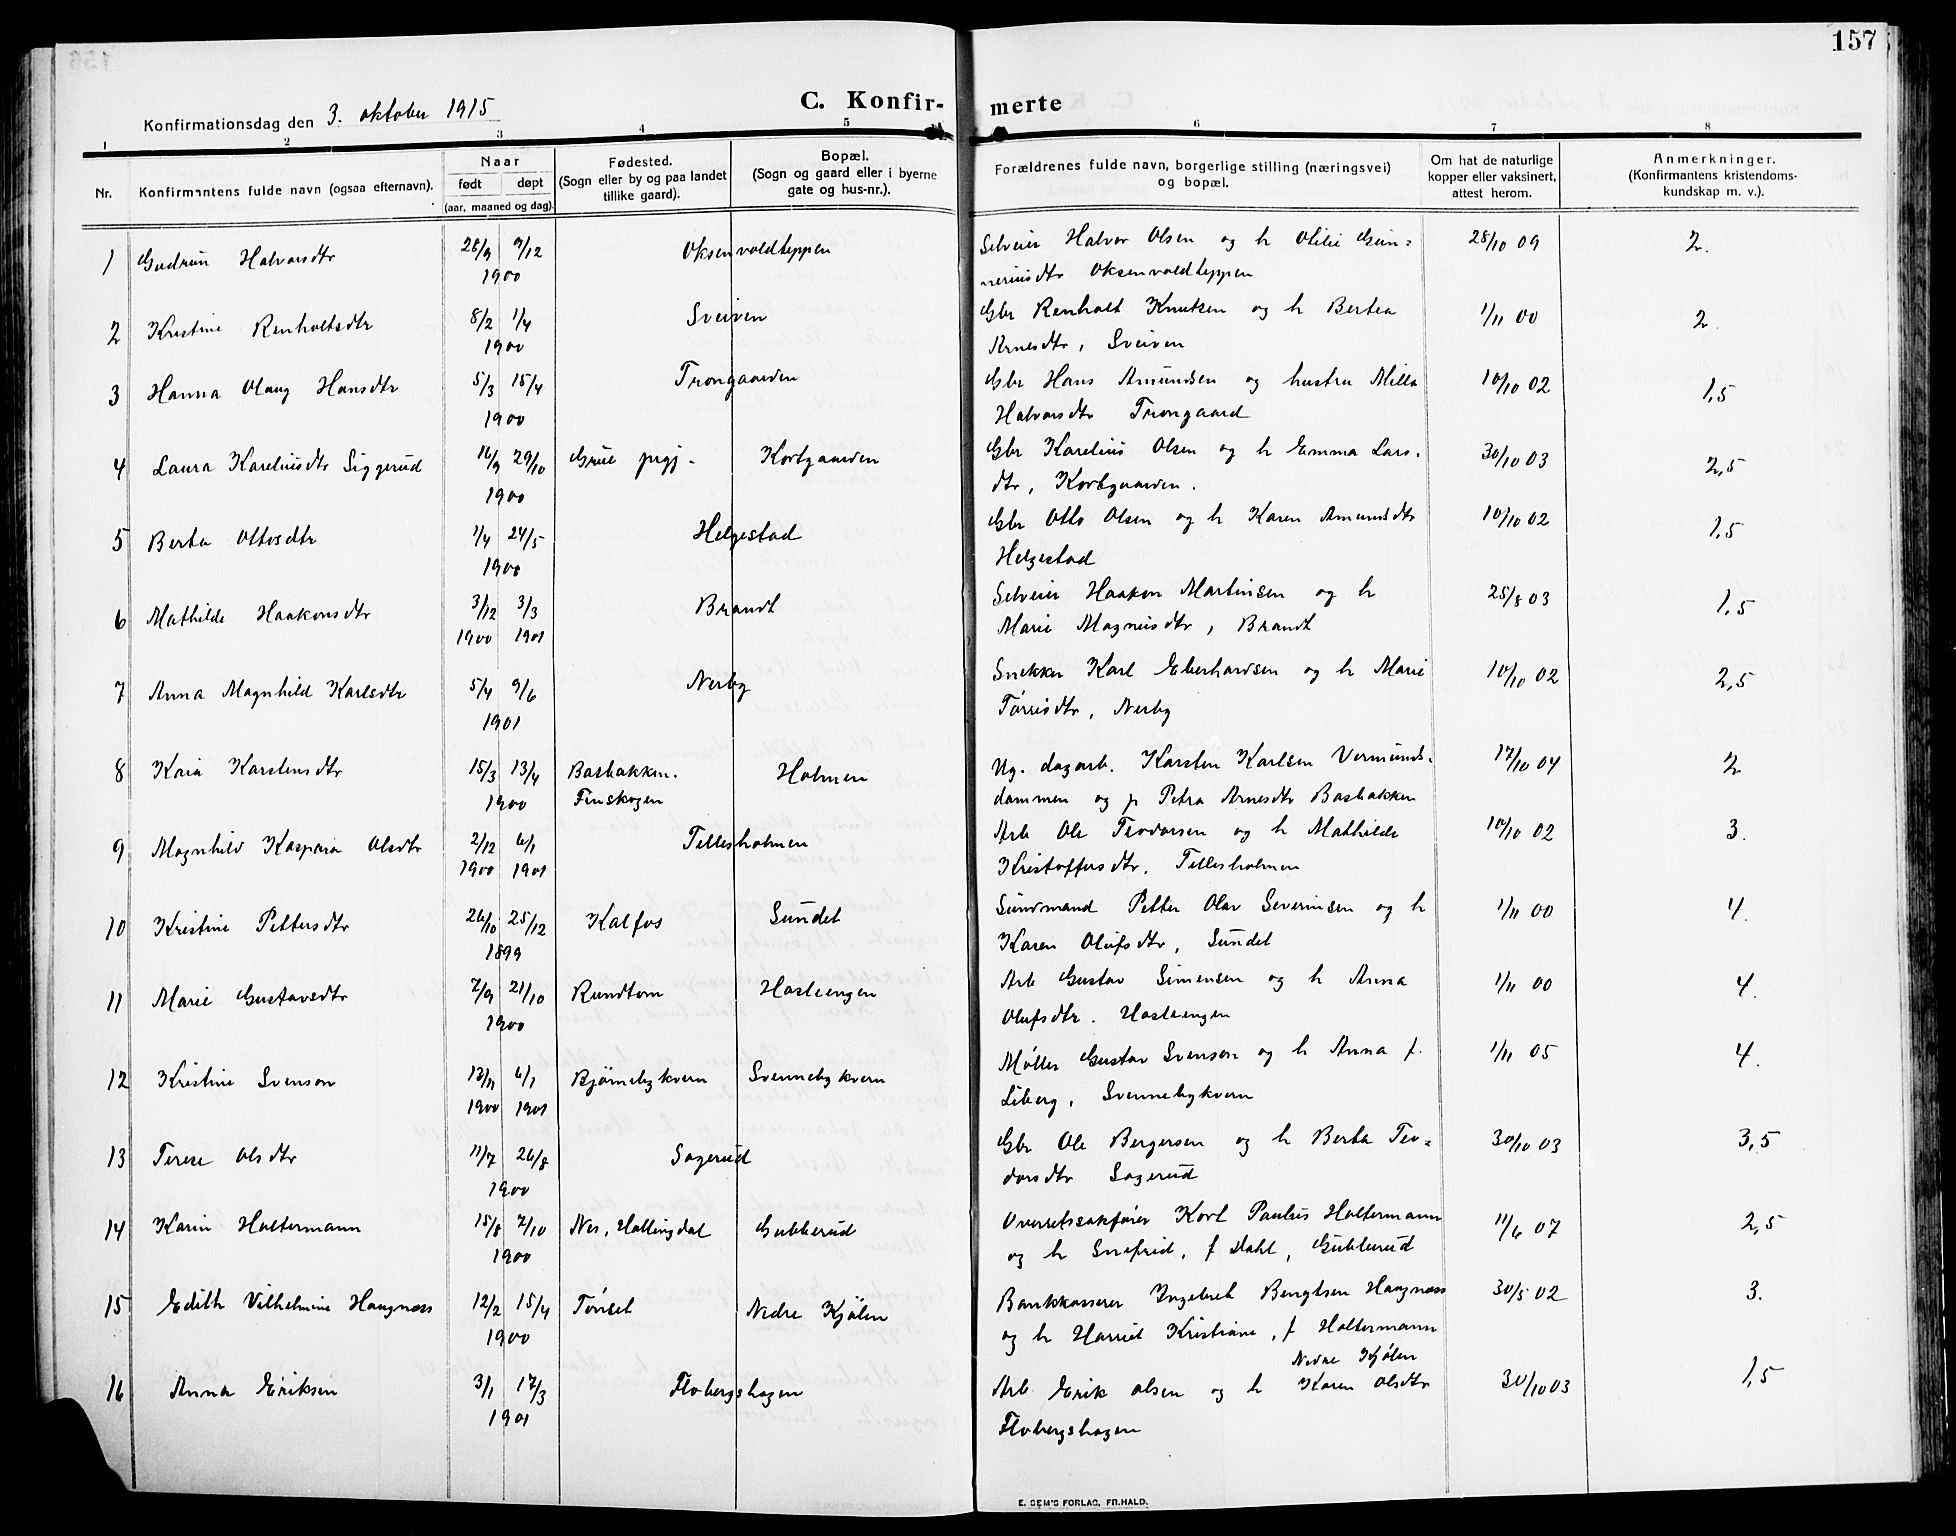 157
Konfirmationsdag den 3. oktober 1915
C. Konfir- merte
1 2 3 4 5 6 7 8
Nr.
Konfirmantens fulde navn (ogsaa efternavn).
Naar
født døpt
(aar, maaned og dag).
Fødested.
(Sogn eller by og paa landet
tillike gaard).
Bopæl.
(Sogn og gaard eller i byerne
gate og hus-nr.).
Forældrenes fulde navn, borgerlige stilling (næringsvei)
og bopæl.
Om hat de naturlige
kopper eller vaksinert,
attest herom.
Anmerkninger.
(Konfirmantens kristendoms-
kundskap m. v.).
1 Gudrun Halvorsdtr 28/9 9/12 Oksenvoldteppen Selveier Halvor Olsen og h Otilie Gun= 28/10 09 2.
1900 neriusdtr Oksenvoldteppen
2 Kristine Renholtsdtr 8/2 1/4 Sveiven Gbr Renholt Knutsen og h Bertea 1/11 00 2.
1900 Arnesdtr, Sveiven
3 Hanna Olaug Hansdtr 5/3 15/4 Trongaarden Gbr Hans Amundsen og hustru Milla 10/10 02 1,5
1900 Halvorsdtr Trongaard
4 Laura Kareliusdtr Siggerud 16/9 29/10 Grue prgj. Kortgaarden Gbr Karelius Olsen og h Emma Lars- 30/10 03 2,5
1900 dtr, Kortgaarden.
5 Berta Ottosdtr 1/4 24/5 Helgestad Gbr Otto Olsen og h Karen Amundsdtr 10/10 02 1,5
1900 Helgestad
6 Mathilde Haakonsdtr 3/12 3/3 Brandt Selveier Haakon Martinsen og h 25/8 03 1,5
1900 1901 Marie Magnusdtr, Brandt
7 Anna Magnhild Karlsdtr 5/4 9/6 Nerby Snekker Karl Eberhardsen og h Marie 10/10 02 2,5
1901 Tørrisdtr, Nerby
8 Kaia Karstensdtr 15/3 13/4 Basbakken. Holmen Ug. dagarb. Karsten Karlsen Vermunds- 17/10 04 2
1900 Finskogen dammen og p Petra Arnesdtr Basbakken
9 Magnhild Kaspara Olsdtr 2/12 6/1 Tellesholmen Arb Ole Teodorsen og h Mathilde 10/10 02 3.
1900 1901 Kristoffersdtr. Tellesholmen
10 Kristine Pettersdtr 26/10 25/12 Kalfos Sundet Sundmand Petter Olav Severinsen og h 1/11 00 4.
1899 Karen Olufsdtr, Sundet
11 Marie Gustavsdtr 7/9 21/10 Rundtom Hasliengen Arb Gustav Simensen og h Anna 1/11 00 4.
1900 Olufsdtr. Hasliengen
12 Kristine Svenson 13/11 6/1 Bjørnebykvern Svennebykvern Møller Gustav Svenson og h Anna f. 1/11 05 4.
1900 1901 Liberg, Svennebykvern
13 Terese Olsdtr 11/7 26/8 Sagerud Gbr Ole Bergersen og h Berta Teo= 30/10 03 3,5
1900 dorsdtr Sagerud
14 Karin Holtermann 15/8 7/10 Nes, Hallingdal Gubberud Overretssakfører Karl Paulus Holtermann 11/6 07 2,5
1900 og h Snefrid, f Dahl, Gubberud
15 Edith Vilhelmine Haugnæss 12/2 15/4 Tønset Nedre Kjølen Bankkasserer Ingebret Bengtsen Haugnæss 30/5 02 3.
1900 og h Harriet Kristiane, f Holtermann
Nedre Kjølen
16 Anna Eriksen 3/1 17/3 Flobergshagen Arb Erik Olsen og h Karen Olsdtr 30/10 03 1,5
1901 Flobergshagen
E. SEM'S FORLAG, FR.HALD.